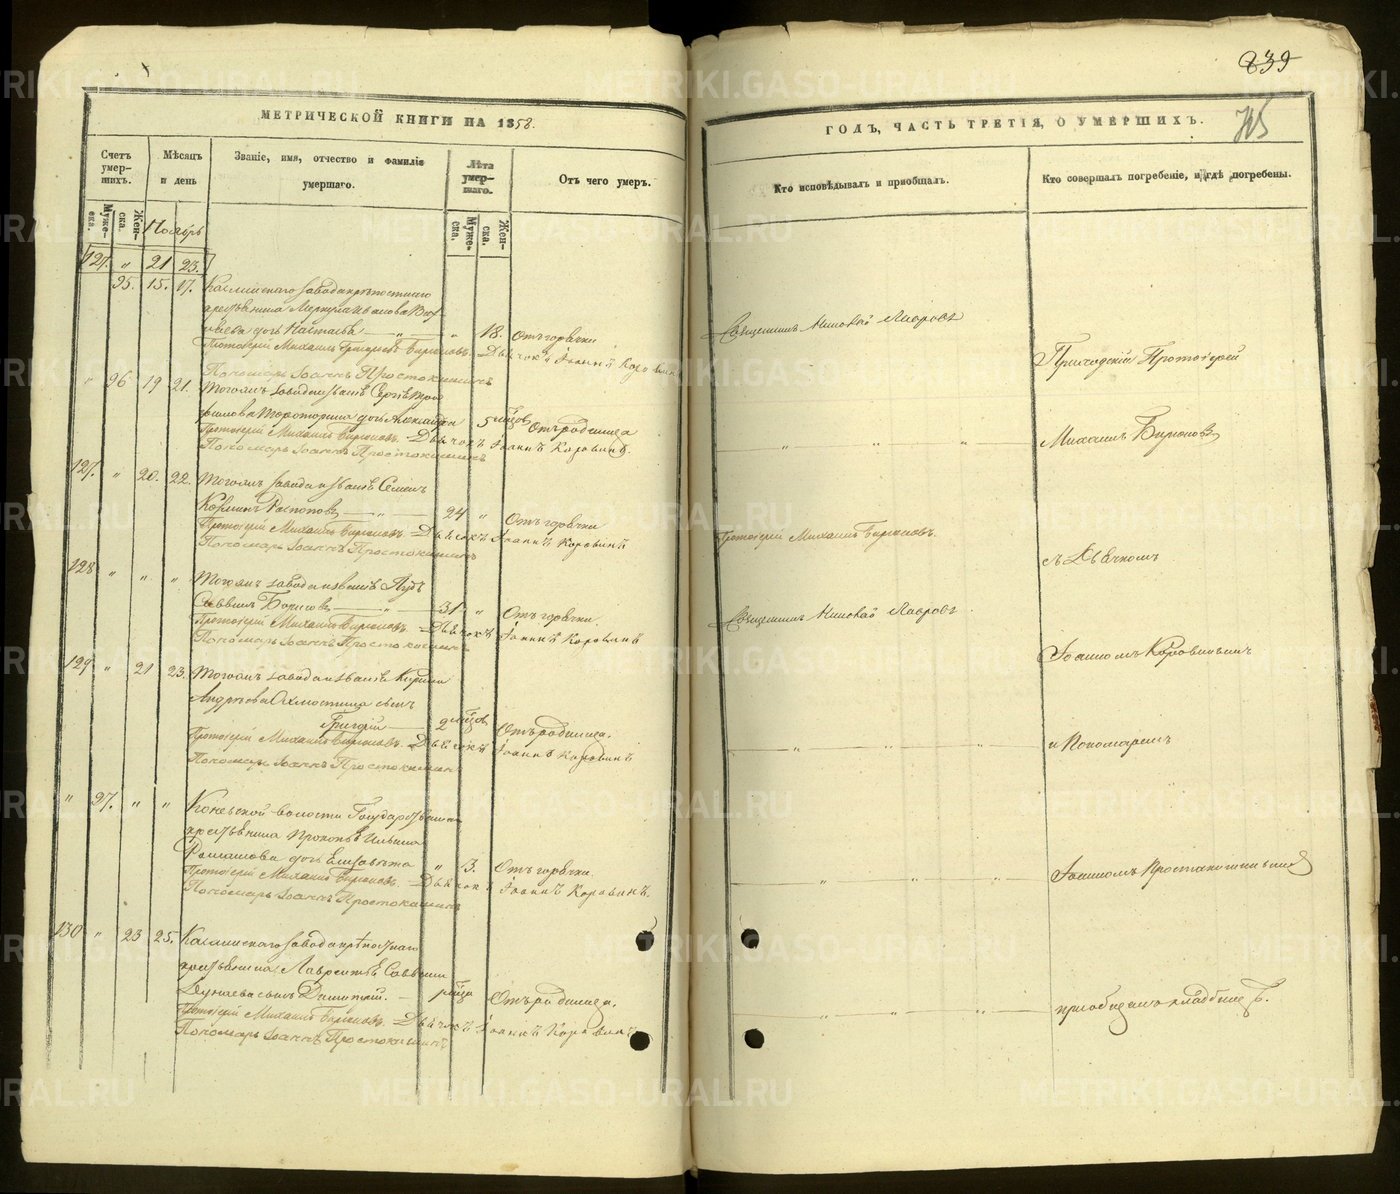 839
МЕТРИЧЕСКОЙ КНИГИ НА 1858.
ГОДЪ, ЧАСТЬ ТРЕТІЯ, О УМЕРШИХЪ.
Счетъ умер-шихъ.
Муже-ска.
Жен-ска.
Мѣсяцъ и день
Званіе, имя, отчество и фамилія умершаго.
Лѣта умер-шаго.
Муже-ска.
Жен-ска.
Отъ чего умеръ.
Кто исповѣдывалъ и пріобщалъ.
Кто совершалъ погребеніе, и гдѣ погребены.
Ноябрь
127. " 21 23.
95. 15. 17. Каслинскаго завода крѣпостнаго
крестьянина Меркурія Иванова
дочь Настасья " 18. Отъ горячки
Священникъ Николай Лавровъ
Протоіерей Михаилъ Бирюковъ. Дьячокъ Іоаннъ Коровинъ
Пономарь Іоаннъ Простокишинъ
Приходскій Протоіерей
" 96 19 21. Тогожъ завода и званія Сергія
дочь Александра 5 мѣсцов Отъ родимца
Протоіерей Михаилъ Бирюковъ. Дьячокъ Іоаннъ Коровинъ.
Пономарь Іоаннъ Простокишинъ
Михаилъ Бирюковъ
127. " 20. 22. Тогожъ завода и званія Семенъ
Распоповъ 24 " Отъ горячки
Протоіерей Михаилъ Бирюковъ. Дьячокъ Іоаннъ Коровинъ
Пономарь Іоаннъ Простокишинъ
Протоіерей Михаилъ Бирюковъ.
съ Дьячкомъ
128 " " " Тогожъ завода и званія
Саввинъ Борисовъ 31 " Отъ горячки.
Протоіерей Михаилъ Бирюковъ. Дьячокъ Іоаннъ Коровинъ
Пономарь Іоаннъ Простокишинъ
Священникъ Николай Лавровъ
Іоанномъ Коровинымъ
129 " 21 23. Тогожъ завода и званія
Андреева сынъ
Григорій 2 мѣсцов Отъ родимца.
Протоіерей Михаилъ Бирюковъ. Дьячокъ Іоаннъ Коровинъ
Пономарь Іоаннъ Простокишинъ
и Пономаремъ
" 97. " " Коневской волости Государственнаго
крестьянина Прокопія Ильина
Ромашова дочь Елизавета " 3. Отъ горячки.
Протоіерей Михаилъ Бирюковъ. Дьячокъ Іоаннъ Коровинъ.
Пономарь Іоаннъ Простокишинъ
Іоанномъ Простокишинымъ
130 " 23 25. Каслинскаго завода крѣпостнаго
крестьянина Лаврентія Саввина
Дунаева сынъ Димитрій. Отъ родимца.
Протоіерей Михаилъ Бирюковъ. Дьячокъ Іоаннъ Коровинъ
Пономарь Іоаннъ Простокишинъ
METRIKI.GASO-URAL.RU